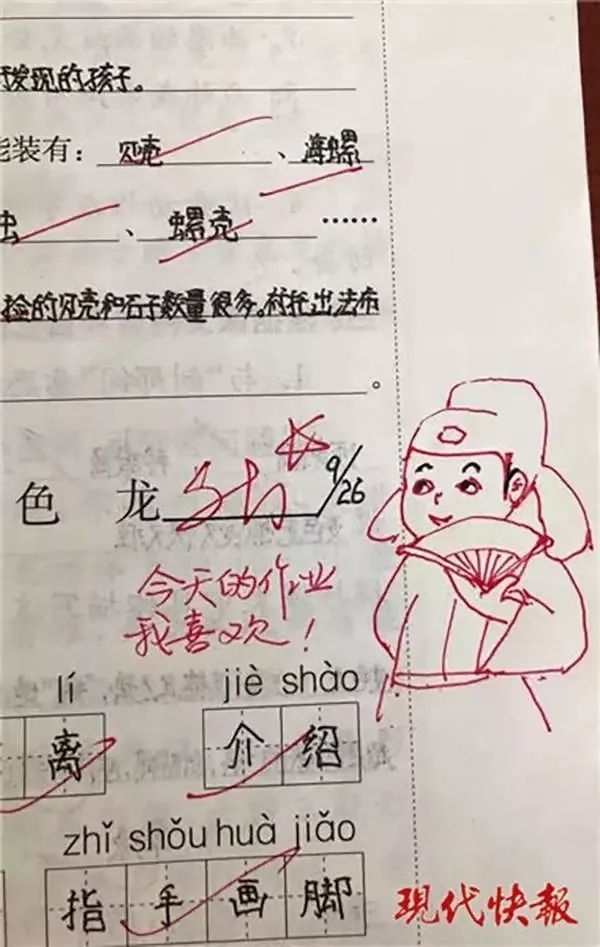 发现的孩子。
能装有：贝壳、海螺
虫、螺壳……
捡的贝壳和石子数量很多。
。
色 龙 9/26
今天的作业
我喜欢！
lí jiè shào
离 介绍
zhǐ shǒu huà jiǎo
指手画脚
现代快報